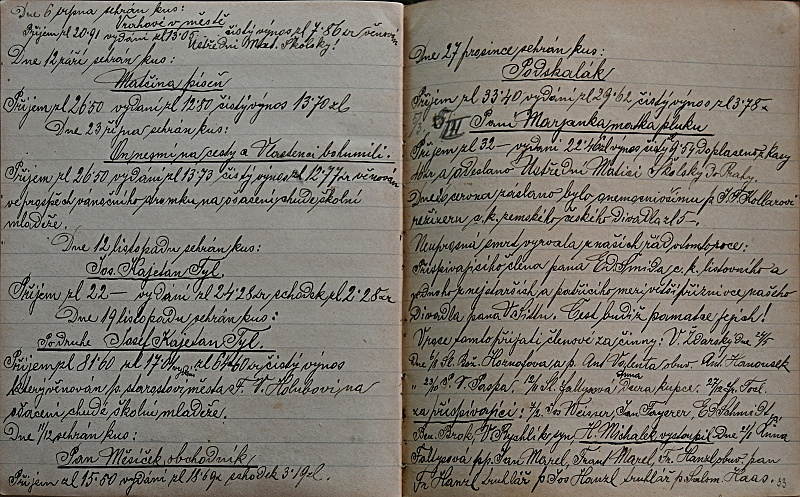 Dne 6 srpna sehrán kus:
Vrahové v městě
Příjem zl 20·91 vydání zl 13·05 čistý výnos zl 7·86 kr věnován
Ústřední Mat. Školský!
Dne 12 září sehrán kus:
Matčina píseň
Příjem zl 26·50 vydání zl 12·80 čistý výnos 13·70 zl
Dne 23 října sehrán kus:
On nesmí na cesty a Vlastenci bohumilí.
Příjem zl 26·50 vydání zl 13·73 čistý výnos zl 12·77 kr věnován
ve prospěch vánočního stromku na ošacení chudé školní
mládeže.
Dne 12 listopadu sehrán kus:
Jos. Kajetan Tyl.
Příjem zl 22— vydání zl 24·28 kr schodek zl 2·28 kr
Dne 19 listopadu sehrán kus:
Po druhé Josef Kajetan Tyl.
Příjem zl 81·60 zl 17·04 zl 64·60 kr čistý výnos
který věnován p. starostovi města F. V. Holubovi na
ošacení chudé školní mládeže.
Dne 11/12 sehrán kus:
Pan Měsíček, obchodník
Příjem zl 15·80 vydání zl 18·69 schodek 3·19 zl.
Dne 27 prosince sehrán kus:
Podskalák
Příjem zl 33·40 vydání zl 29·62 čistý výnos zl 3·78
III Paní Marjanka matka pluku
Příjem zl 32— vydání 22·46 zl výnos čistý 9·54 doplaceno z kasy
a odesláno Ústřední Matici Školské do Prahy.
Dne června zasláno bylo p J. F. Kollarovi
režiseru c. k. zemského českého Divadla zl 5.
Neúprosná smrt vyrvala z našich řad v tomto roce:
Přispívajícího člena pana Ed. Šmída c. k. listovního a
jednoho z nejstarších a patřícího mezi větší příznivce našeho
Divadla pana V. Čest budiž památce jejich!
V roce tomto přijati členové za činny: V. Žďárský dne 24/5
Dne Sl. Rož. Hornofova a p. Ant Valenta obuv. Ant. Hanousek
Sl. Faltysová Anna kupce.
za přispívající: Jos Weisser, Jan Fayerer, Ed Schmidt
Ben. Brok, V Rychlík syn, H. Michálek vystoupil Dne 2/1 Anna
Faltysová p.p. Jan Marel, Frant Marel, Fr. Hanzl obuv. pan
Fr Hanzl truhlář p Jos Hanzl truhlář p Šalom. Haas. 53